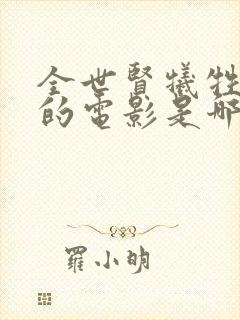 全世賢犧牲
的電影是哪
羅小明